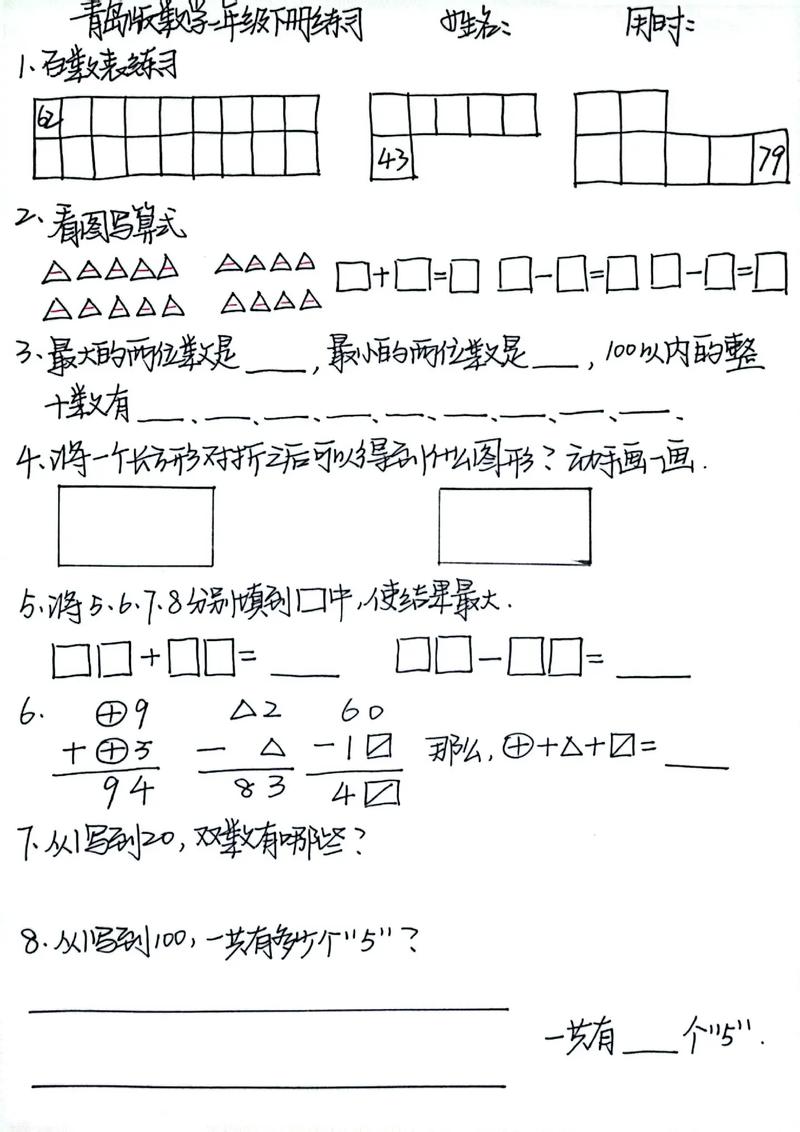 青岛版数学一年级下册练习 姓名： 用时：
1、百数表练习
62
43
79
2、看图写算式
□+□=□ □-□=□ □-□=□
3、最大的两位数是____，最小的两位数是____，100以内的整
十数有____、____、____、____、____、____、____、____、____、
4、将一个长方形对折之后可以得到什么图形？动手画一画.
5、将5、6、7、8分别填到□中，使结果最大.
□□+□□=____ □□-□□=____
6. ⊕9 △2 60
+⊕5 - △ -1⍁ 那么，⊕+△+⍁=____
94 83 4⍁
7、从1写到20，双数有哪些？
8、从1写到100，一共有多少个"5"？
一共有____个"5".